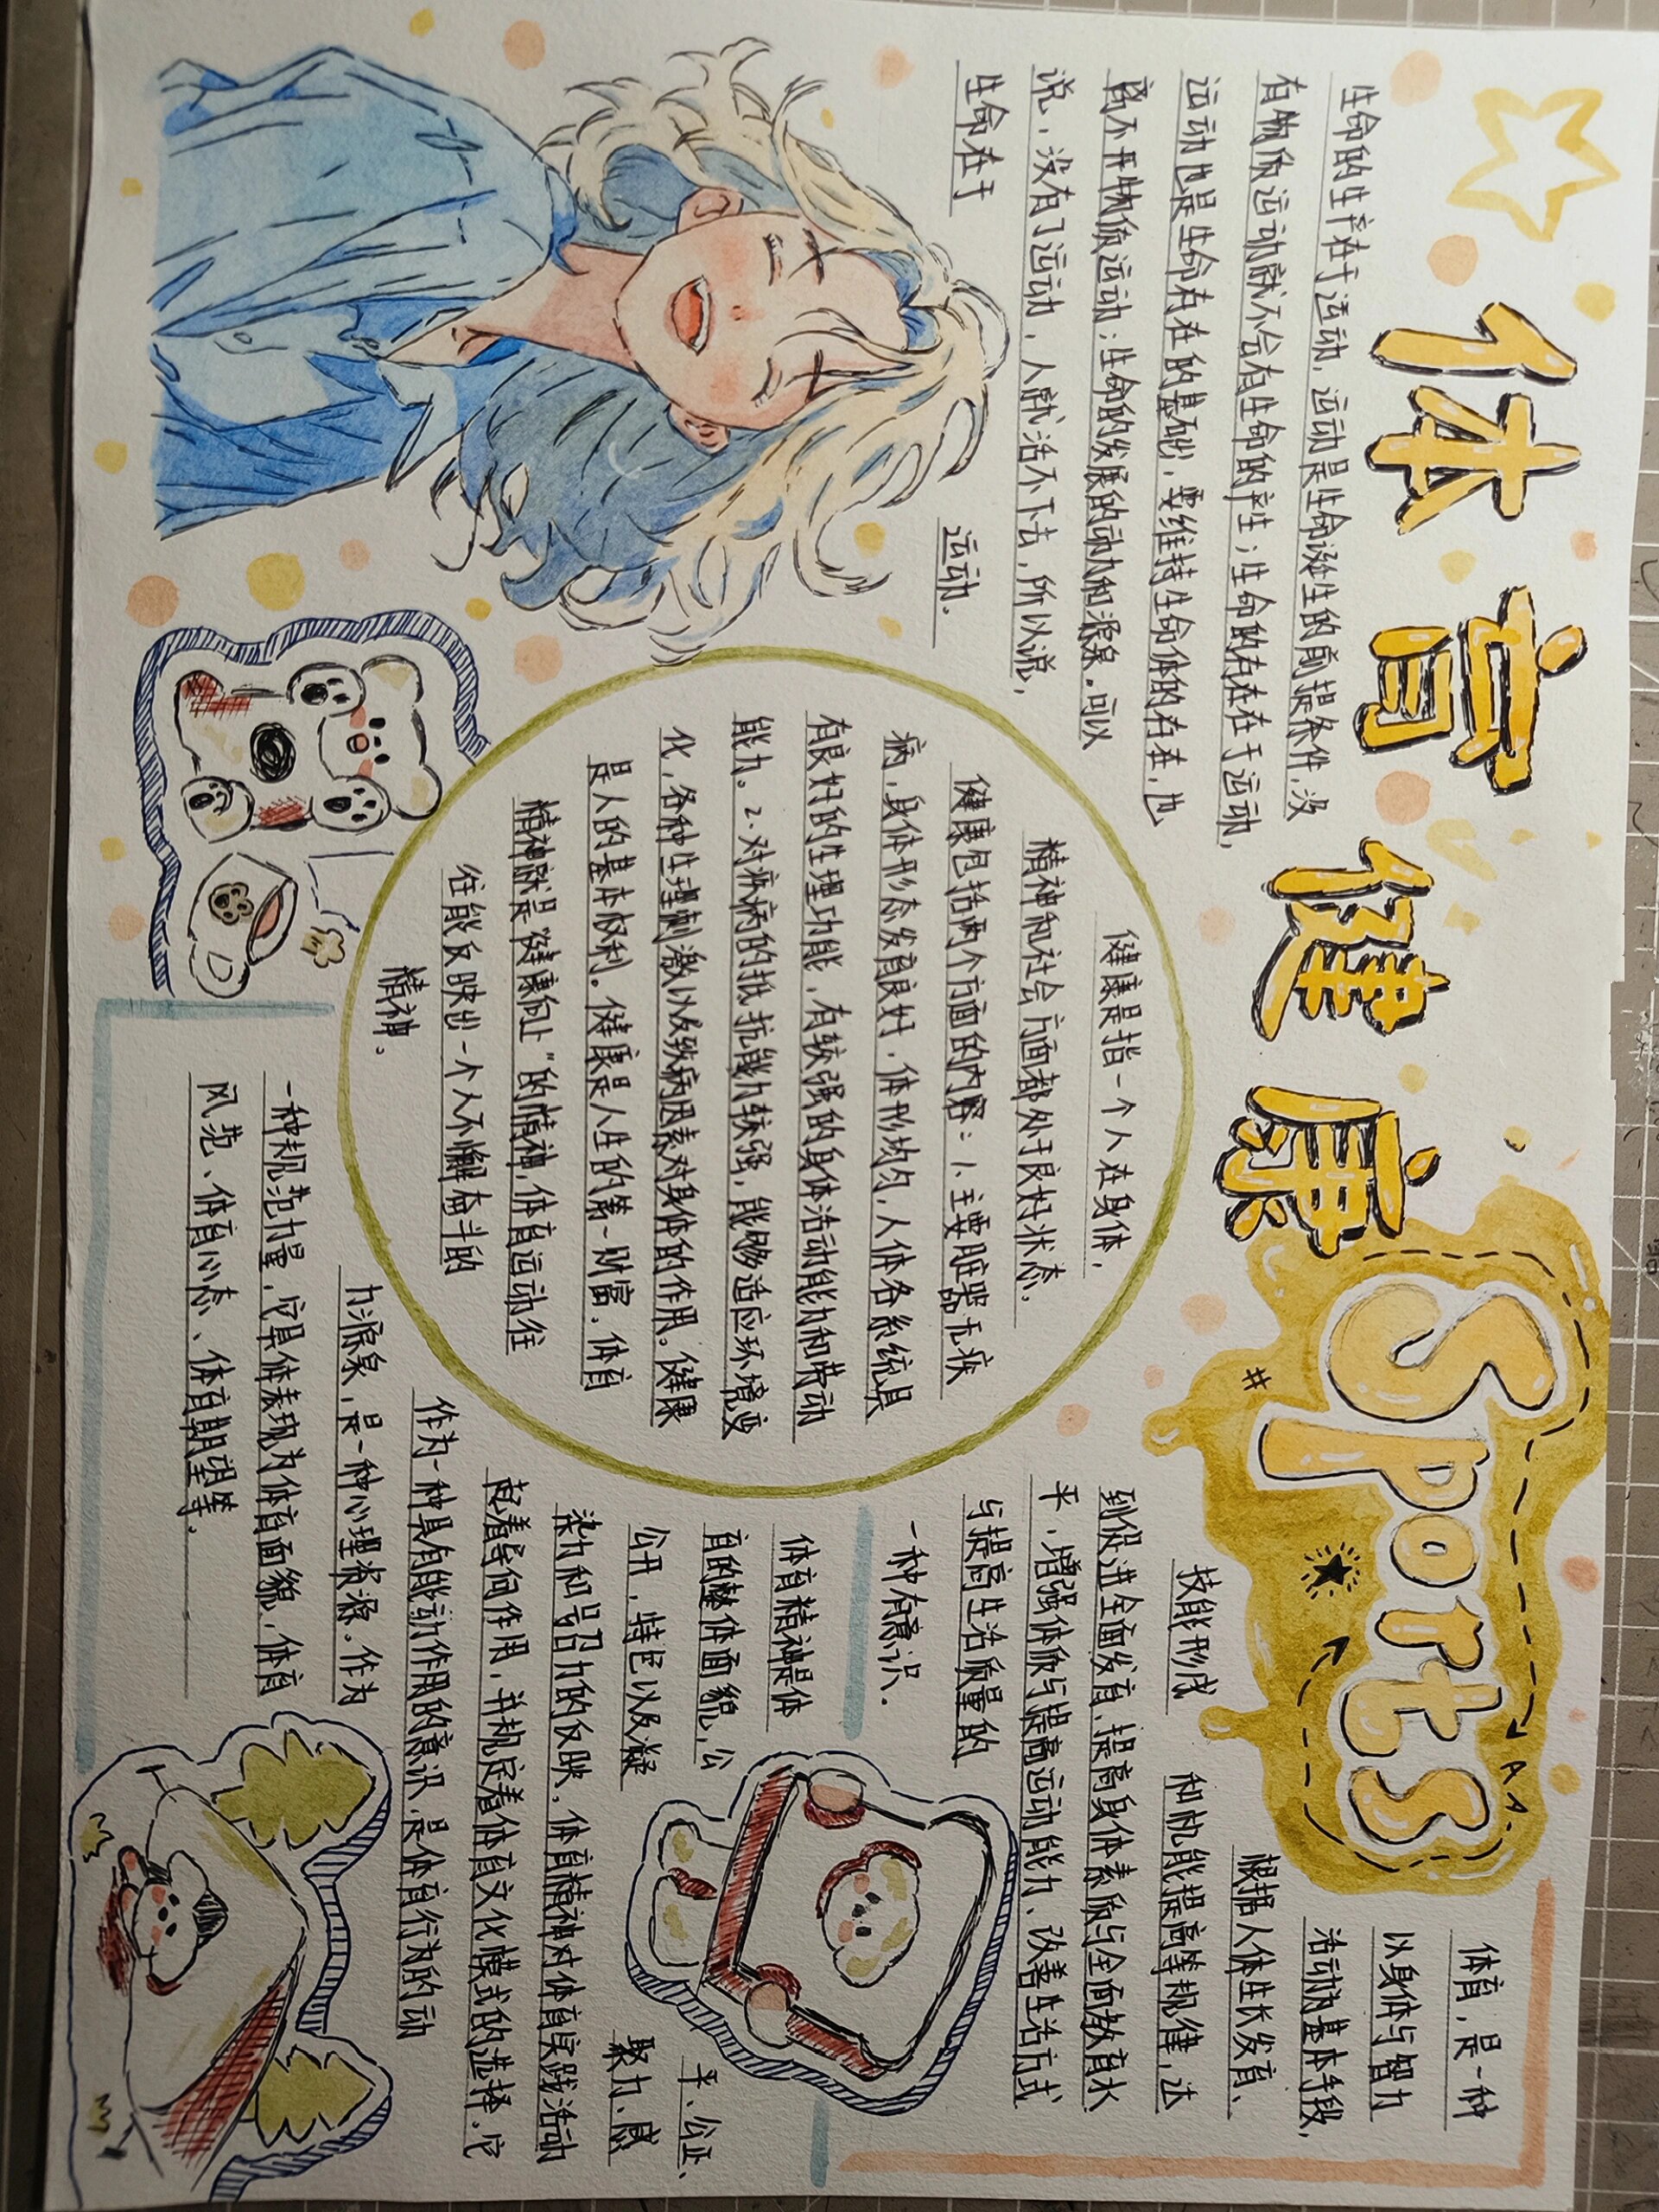 体育健康
Sports
生命的生产在于运动，运动是生命诞生的前提条件，没
有物质运动就不会有生命的产生；生命的存在在于运动，
运动也是生命存在的基础，要维持生命体的存在，也
离不开物质运动；生命的发展的动力和源泉。可以
说，没有了运动，人就活不下去，所以说，
生命在于
运动.
健康是指一个人在身体，
精神和社会方面都处于良好状态，
健康包括两个方面的内容：1、主要脏器无疾
病，身体形态发育良好，体形均匀，人体各系统具
有良好的生理功能，有较强的身体活动能力和劳动
能力。2.对疾病的抵抗能力较强，能够适应环境变
化，各种生理刺激以及致病因素对身体的作用。健康
是人的基本权利。健康是人生的第一财富，体育
精神就是“健康向上”的精神，体育运动往
往能反映出一个人不懈奋斗的
精神。
体育，是一种
以身体与智力
活动为基本手段，
根据人体生长发育、
技能形成
和机能提高等规律，达
到促进全面发育、提高身体素质与全面教育水
平，增强体质与提高运动能力、改善生活方式
与提高生活质量的
一种有意识.
体育精神是体
育的整体面貌，公
平、公正、
公开，特色以及凝
聚力、感
染力和号召力的反映，体育精神对体育实践活动
起着导向作用，并规定着体育文化模式的选择.它
作为一种具有能动作用的意识，是体育行为的动
力源泉，是一种心理资源.作为
一种规范力量，它具体表现为体育面貌、体育
风范、体育心态、体育期望等.